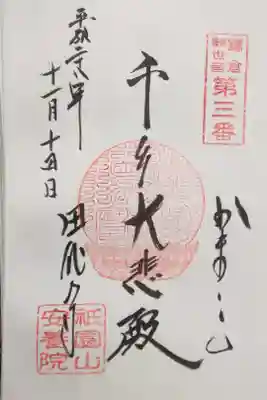 鎌倉
観世音
第三番
かまくら
千手大悲殿
田代
平成二八年
十一月十五日
祇園山
安養院